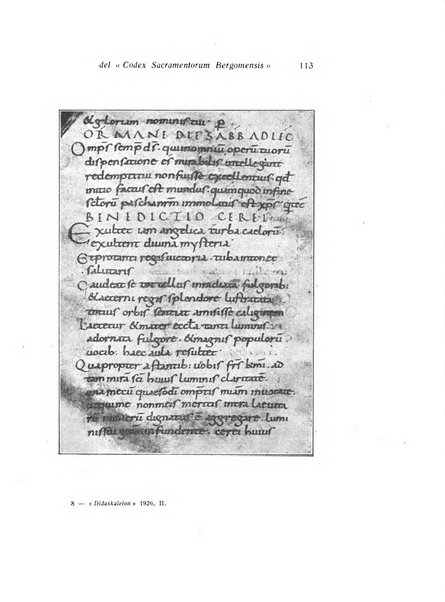 del « Codex Sacramentorum Bergomensis » 113
& gloriam nominis tui · P
OR MANE DIE SABB AD LEC
Omps semp ds · qui in omniū operū tuorū
dispensatione es mirabilis intellegant
redempti tui non fuisse excellentius qd
initio factus est mundus · quam quod in fine
seculorū pascha nrm immolatus est xps · q tec
BENEDICTIO CEREI
Exultet iam angelica turba caelorū
exultent divina mysteria
Et pro tanti regis victoria · tuba intonet
salutaris
Gaudeat se tot tellus inradiata fulgorib:
& aeterni regis splendore lustrata
totius orbis sentiat amisisse caliginem
Laetetur & mater eccla tanti luminis
adornata fulgore · & magnis populorū
vocib: haec aula resultet
Quapropter astantib: vobis frs kmi · ad
tam mira sci huius luminis claritatē
una mecū quaeso di omptis miam invocate
ut qui me non meis meritis intra levita
rū numerū dignatus ē aggregare · lumi
nis sui infundente · cerei huius
8 — « Didaskaleion » 1926, II.